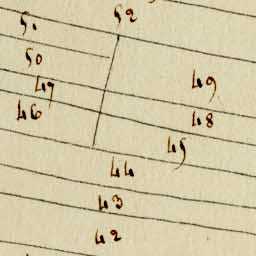 52
51
50
49
47
48
46
45
44
43
42